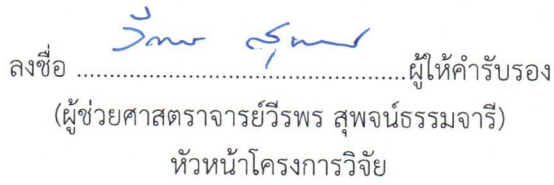 ลงชื่อ ................................................ผู้ให้คำรับรอง
(ผู้ช่วยศาสตราจารย์วีรพร สุพจน์ธรรมจารี)
หัวหน้าโครงการวิจัย